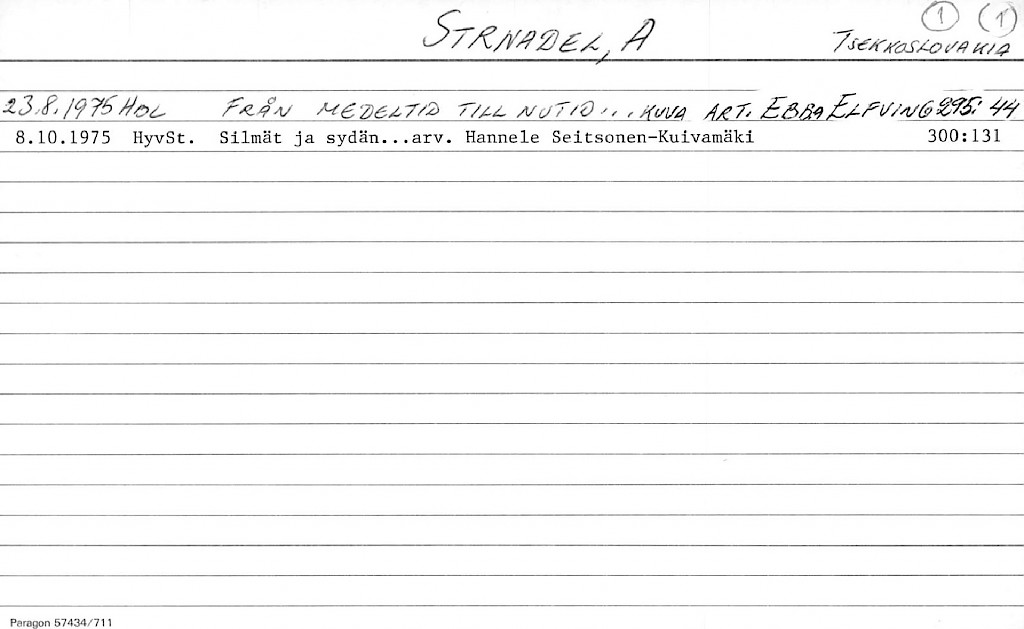 STRNADEL, A
1 (1)
TSEKKOSLOVAKIA
23.8.1975 HBL FRÅN MEDELTID TILL NUTID... KUVA ART. EBBA ELFVING 295: 44
8.10.1975 HyvSt. Silmät ja sydän...arv. Hannele Seitsonen-Kuivamäki 300:131
Paragon 57434/711